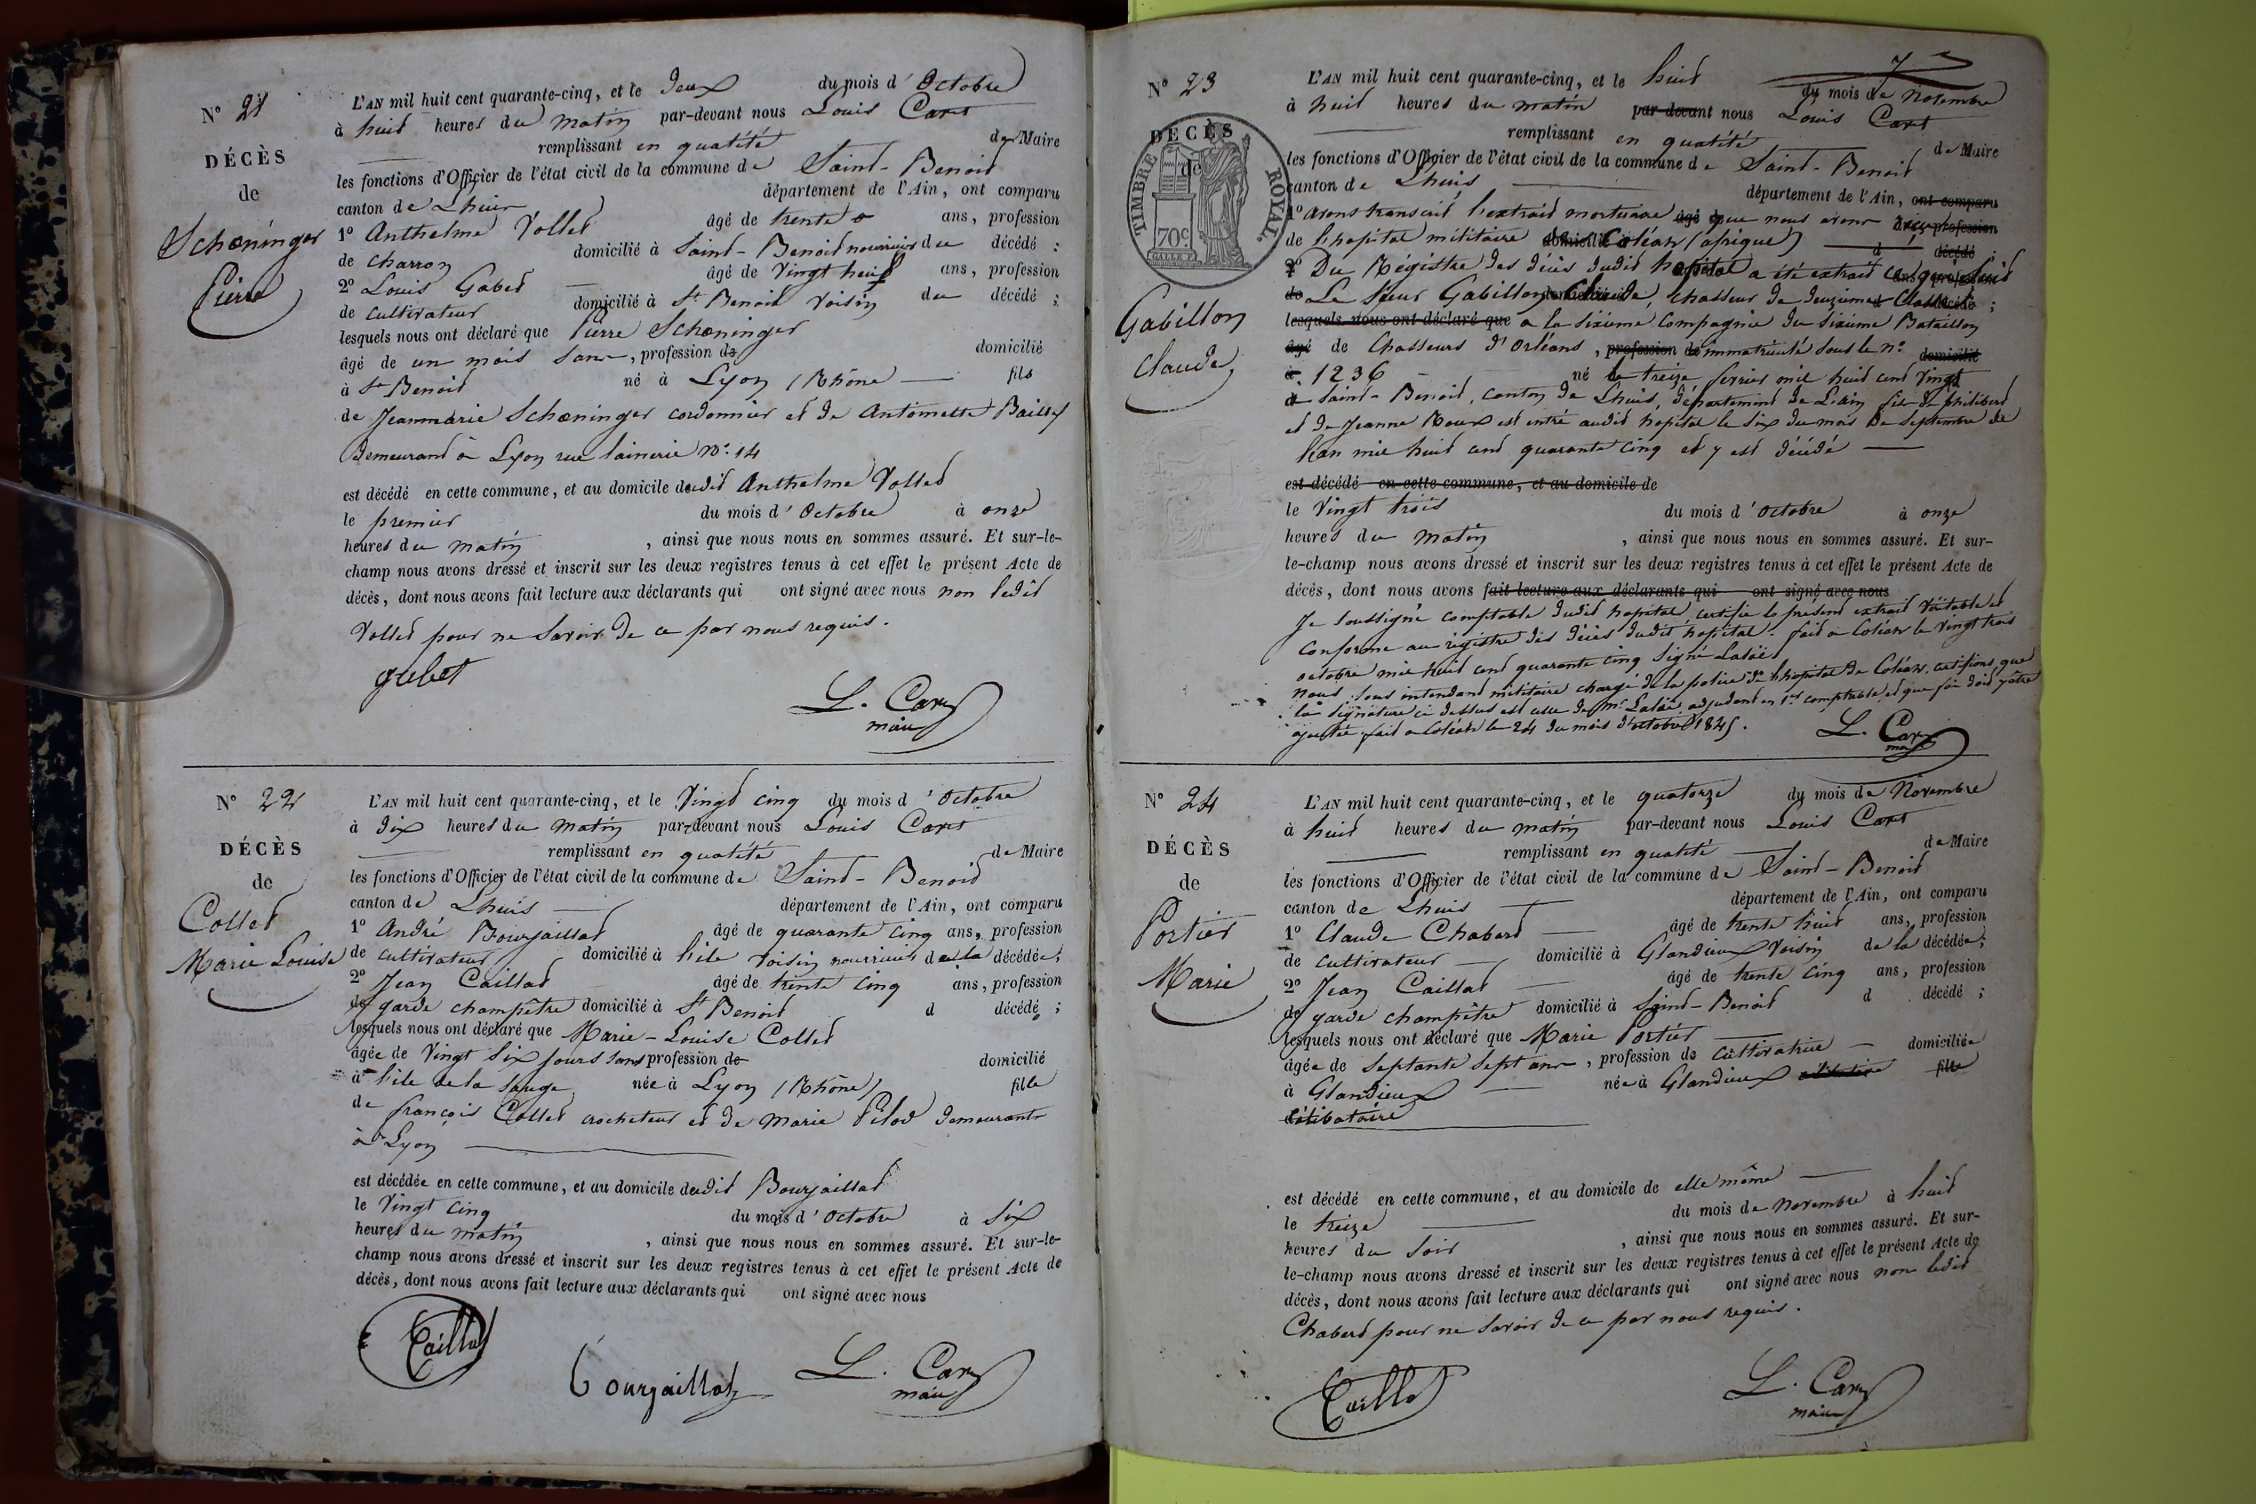 N° 21
DÉCÈS
de
Schœninger
Pierre
L'AN mil huit cent quarante-cinq, et le deux du mois d'Octobre
à huit heures du matin par-devant nous Louis Caret
remplissant en qualité de Maire
les fonctions d'Officier de l'état civil de la commune de Saint-Benoit
canton de Lhuis département de l'Ain, ont comparu
1° Anthelme Vollet âgé de trente ans, profession
de charron domicilié à Saint-Benoit nourricier du décédé :
2° Louis Gabet âgé de vingt neuf ans, profession
de cultivateur domicilié à St Benoit voisin du décédé ;
lesquels nous ont déclaré que Pierre Schœninger
âgé de un mois sans, profession de domicilié
à St Benoit né à Lyon (Rhône) fils
de Jeanmarie Schœninger cordonnier et de antoinette Baillet
Demeurant à Lyon rue lainerie n° 14
est décédé en cette commune, et au domicile dudit Anthelme Vollet
le premier du mois d'Octobre à onze
heures du matin, ainsi que nous nous en sommes assuré. Et sur-le-
champ nous avons dressé et inscrit sur les deux registres tenus à cet effet le présent Acte de
décès, dont nous avons fait lecture aux déclarants qui ont signé avec nous non ledit
Vollet pour ne savoir de ce par nous requis.
gabet
L. Caret
maire
N° 22
DÉCÈS
de
Collet
Marie Louise
L'AN mil huit cent quarante-cinq, et le Vingt cinq du mois d'Octobre
à dix heures du matin par-devant nous Louis Caret
remplissant en qualité de Maire
les fonctions d'Officier de l'état civil de la commune de Saint-Benoit
canton de Lhuis département de l'Ain, ont comparu
1° André Bourjaillat âgé de quarante cinq ans, profession
de cultivateur domicilié à l'ile voisin nourricier de la décédée ;
2° Jean Caillat âgé de trente cinq ans, profession
de garde champêtre domicilié à St Benoit d décédé ;
lesquels nous ont déclaré que Marie-Louise Collet
âgée de Vingt six jours sans profession de domicilié
à l'ile de la sauge née à Lyon (Rhône) fille
de françois Collet crocheteur et de marie Pilot demeurant
à Lyon
est décédée en cette commune, et au domicile dudit Bourjaillat
le Vingt cinq du mois d'Octobre à six
heures du matin, ainsi que nous nous en sommes assuré. Et sur-le-
champ nous avons dressé et inscrit sur les deux registres tenus à cet effet le présent Acte de
décès, dont nous avons fait lecture aux déclarants qui ont signé avec nous
Caillat
Bourjaillat
L. Caret
maire
N° 23
DÉCÈS
de
TIMBRE ROYAL.
70c
Gabillon
Claude,
L'AN mil huit cent quarante-cinq, et le huit du mois de Novembre
à huit heures du matin par-devant nous Louis Caret
remplissant en qualité de Maire
les fonctions d'Officier de l'état civil de la commune de Saint-Benoit
canton de Lhuis département de l'Ain, ont comparu
1° avons transcrit l'extrait mortuaire âgé que nous avons reçu profession
de l'hopital militaire domicilié à Coléah (afrique) d décédé
2° Du Régistre des décès dudit hopital a été extrait ce qui suit
de Le sieur Gabillon Claude, chasseur de deuxième Classe ;
lesquels nous ont déclaré que a la sixième Compagnie du sixième Bataillon
âgé de Chasseurs d'Orléans, profession de immatriculé sous le n° domicilié
à 1236 né le treize fevrier mil huit cent vingt
à Saint-Benoit, canton de Lhuis, département de L'ain fils de philibert
et de Jeanne Roux est entré audit hopital le six du mois de Septembre de
l'an mil huit cent quarante cinq et y est décédé
est décédé en cette commune, et au domicile de
le Vingt trois du mois d'Octobre à onze
heures du matin, ainsi que nous nous en sommes assuré. Et sur-
le-champ nous avons dressé et inscrit sur les deux registres tenus à cet effet le présent Acte de
décès, dont nous avons fait lecture aux déclarants qui ont signé avec nous
Je soussigné comptable dudit hopital, certifie le présent extrait véritable et
Conforme au régistre des décès dudit hopital. fait à Coléah le Vingt trois
octobre mil huit cent quarante cinq Signé
Nous sous intendant militaire chargé de la police de l'hopital de Coléah, certifions que
la signature ci dessus est celle de Mr adjudant en 1er comptable, et que foi doit y être
ajoutée fait à Coléah le 24 du mois d'octobre 1845.
L. Caret
maire
N° 24
DÉCÈS
de
Portier
Marie
L'AN mil huit cent quarante-cinq, et le quatorze du mois de Novembre
à huit heures du matin par-devant nous Louis Caret
remplissant en qualité de Maire
les fonctions d'Officier de l'état civil de la commune de Saint-Benoit
canton de Lhuis département de l'Ain, ont comparu
1° Claude Chabert âgé de trente huit ans, profession
de cultivateur domicilié à Glandieux voisin de la décédée ;
2° Jean Caillat âgé de trente cinq ans, profession
de garde champêtre domicilié à Saint-Benoit d décédé ;
lesquels nous ont déclaré que Marie Portier
âgée de septante sept ans, profession de cultivatrice domiciliée
à Glandieux née à Glandieux célibataire fille
célibataire
est décédé en cette commune, et au domicile de elle même
le treize du mois de novembre à huit
heures du soir, ainsi que nous nous en sommes assuré. Et sur-
le-champ nous avons dressé et inscrit sur les deux registres tenus à cet effet le présent Acte de
décès, dont nous avons fait lecture aux déclarants qui ont signé avec nous non ledit
Chabert pour ne savoir de ce par nous requis.
Caillat
L. Caret
maire